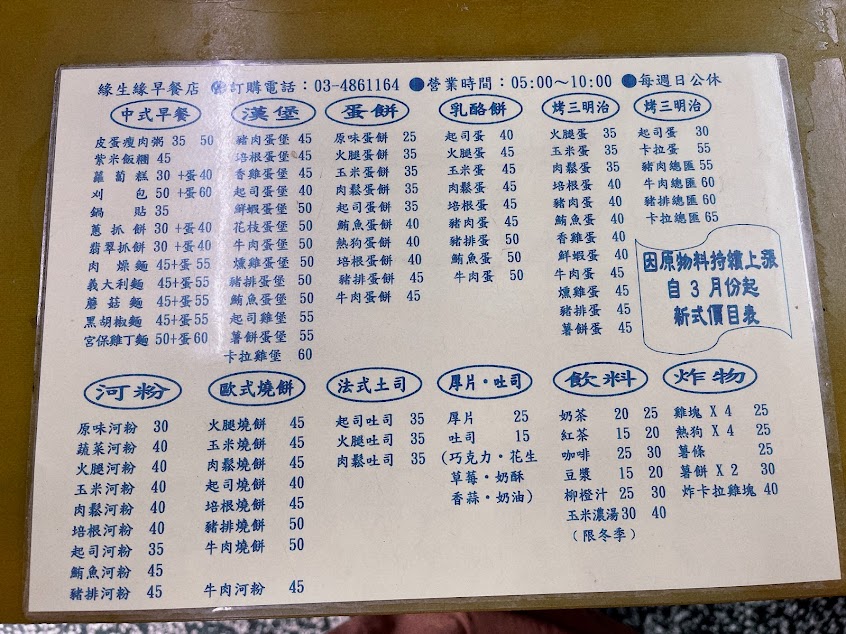 緣生緣早餐店 訂購電話：03-4861164 ●營業時間：05:00～10:00 ●每週日公休
中式早餐
皮蛋瘦肉粥 35 50
紫米飯糰 45
蘿蔔糕 30 +蛋40
刈包 50 +蛋60
鍋貼 35
蔥抓餅 30 +蛋40
翡翠抓餅 30 +蛋40
肉燥麵 45+蛋55
義大利麵 45+蛋55
蘑菇麵 45+蛋55
黑胡椒麵 45+蛋55
宮保雞丁麵 50+蛋60
漢堡
豬肉蛋堡 45
培根蛋堡 45
香雞蛋堡 45
起司蛋堡 40
鮮蝦蛋堡 50
花枝蛋堡 50
牛肉蛋堡 50
燻雞蛋堡 50
豬排蛋堡 50
鮪魚蛋堡 50
起司雞堡 55
薯餅蛋堡 55
卡拉雞堡 60
蛋餅
原味蛋餅 25
火腿蛋餅 35
玉米蛋餅 35
肉鬆蛋餅 35
起司蛋餅 35
鮪魚蛋餅 40
熱狗蛋餅 40
培根蛋餅 40
豬排蛋餅 45
牛肉蛋餅 45
乳酪餅
起司蛋 40
火腿蛋 45
玉米蛋 45
肉鬆蛋 45
培根蛋 45
豬肉蛋 45
豬排蛋 50
鮪魚蛋 50
牛肉蛋 50
烤三明治
火腿蛋 35
玉米蛋 35
肉鬆蛋 35
培根蛋 40
豬肉蛋 40
鮪魚蛋 40
香雞蛋 40
鮮蝦蛋 40
牛肉蛋 45
燻雞蛋 45
豬排蛋 45
薯餅蛋 45
烤三明治
起司蛋 30
卡拉蛋 55
豬肉總匯 55
牛肉總匯 60
豬排總匯 60
卡拉總匯 65
因原物料持續上漲
自 3 月份起
新式價目表
河粉
原味河粉 30
蔬菜河粉 40
火腿河粉 40
玉米河粉 40
肉鬆河粉 40
培根河粉 40
起司河粉 35
鮪魚河粉 45
豬排河粉 45
歐式燒餅
火腿燒餅 45
玉米燒餅 45
肉鬆燒餅 45
起司燒餅 40
培根燒餅 45
豬排燒餅 50
牛肉燒餅 50
牛肉河粉 45
法式土司
起司吐司 35
火腿吐司 35
肉鬆吐司 35
厚片·吐司
厚片 25
吐司 15
(巧克力·花生
草莓·奶酥
香蒜·奶油)
飲料
奶茶 20 25
紅茶 15 20
咖啡 25 30
豆漿 15 20
柳橙汁 25 30
玉米濃湯 30 40
(限冬季)
炸物
雞塊 X 4 25
熱狗 X 4 25
薯條 25
薯餅 X 2 30
炸卡拉雞塊 40